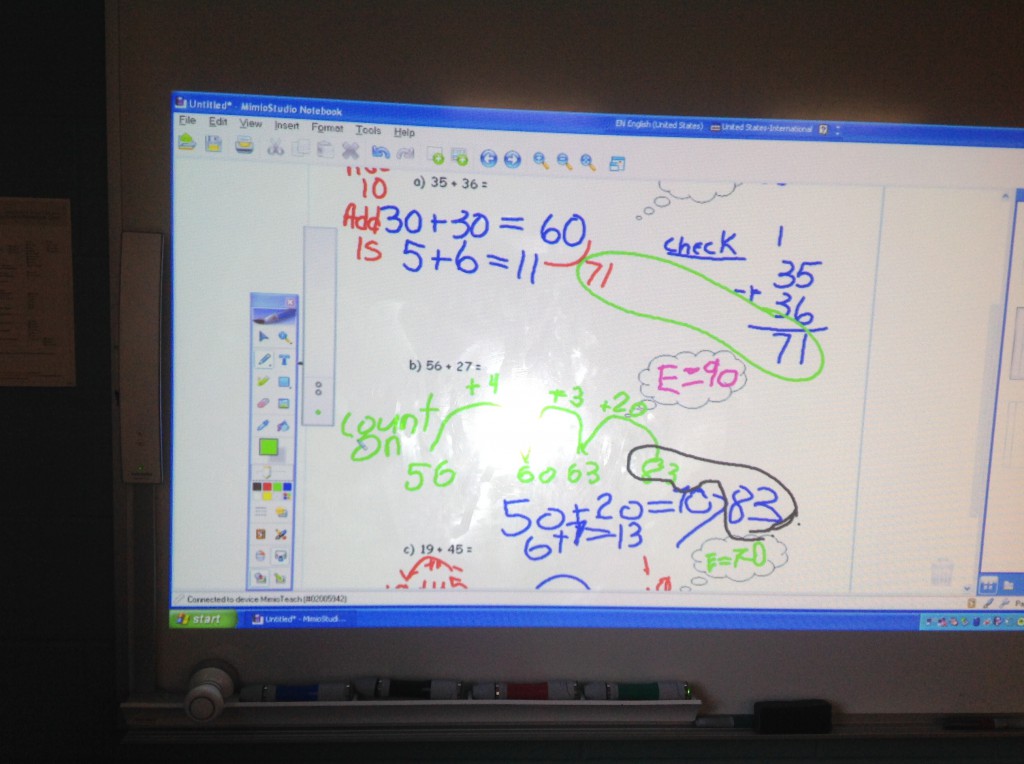 Untitled* - MimioStudio Notebook
EN English (United States) United States-International
File Edit View Insert Format Tools Help
10
a) 35 + 36 =
Add 30+30 = 60
1s 5+6=11 71
check 1
35
+ 36
71
b) 56 + 27 =
E=90
+4 +3 +20
count
on
56 60 63 83
50+20=70 83
6+7=13
c) 19 + 45 =
E=70
Connected to device MimioTeach (#02005942)
start Untitled* - MimioStudi...